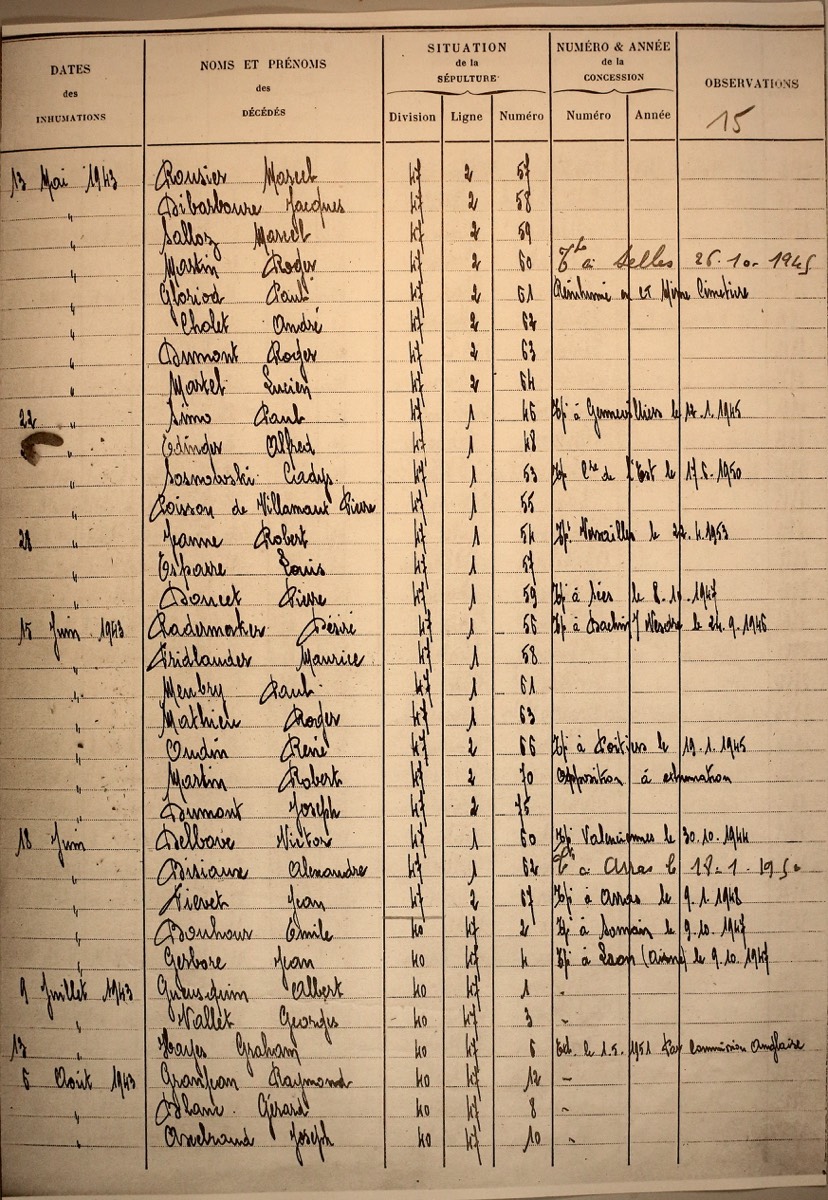 DATES des INHUMATIONS
NOMS ET PRÉNOMS des DÉCÉDÉS
SITUATION de la SÉPULTURE
NUMÉRO & ANNÉE de la CONCESSION
OBSERVATIONS
15
Division Ligne Numéro Numéro Année
13 Mai 1943 Rousier Marcel 47 2 57
" Dibarboure Jacques 47 2 58
" Salloz Marcel 47 2 59
" Martin Roger 47 2 60 à Selles 26.10.1945
" Gloriod Paul 47 2 61 Réinhumé en ct Même Cimetière
" Cholet André 47 2 62
" Dumont Roger 47 2 63
" Martel Lucien 47 2 64
22 " Simo Paul 47 1 46 Tp à Gennevilliers le 1.1945
" Edinger Alfred 47 1 48
" Sosnowski Ladys. 47 1 53 Tp Cre de l'Est le 17.6.1950
" Poisson de Villamaux Pierre 47 1 55
28 " Jeanne Robert 47 1 54 Tp Versailles le 22.4.1953
" Esparre Louis 47 1 57
" Doucet Pierre 47 1 59 Tp à Sées le 8.10.1947
15 Juin 1943 Radermarker Désiré 47 1 56 Tp à Vesdre le 24.9.1946
" Fridlander Maurice 47 1 58
" Menbry Paul 47 1 61
" Mathieu Roger 47 1 63
" Oudin René 47 2 66 Tp à Poitiers le 19.1.1945
" Martin Robert 47 2 70 Opposition à exhumation
" Dumont Joseph 47 2 75
18 Juin Delbove Victor 47 1 60 Tp Valenciennes le 30.10.1944
" Disiaux Alexandre 47 1 62 à Arras le 18-1-1950
" Fievet Jean 47 2 67 Tp à Arras le 9.1.1948
" Bonhour Emile 40 47 2 Tp à Somain le 9.10.1947
" Gerbore Jean 40 47 4 Tp à Laon (Aisne) le 9.10.1947
9 Juillet 1943 Gueusquin Albert 40 47 1 -
" Vallet Georges 40 47 3 -
13 " Hayes Graham 40 47 6 Exh. le 1.5.1951 Par Commission Anglaise
6 Août 1943 Raymond 40 47 12 -
" Blanc Gérard 40 47 8 -
" Joseph 40 47 10 -